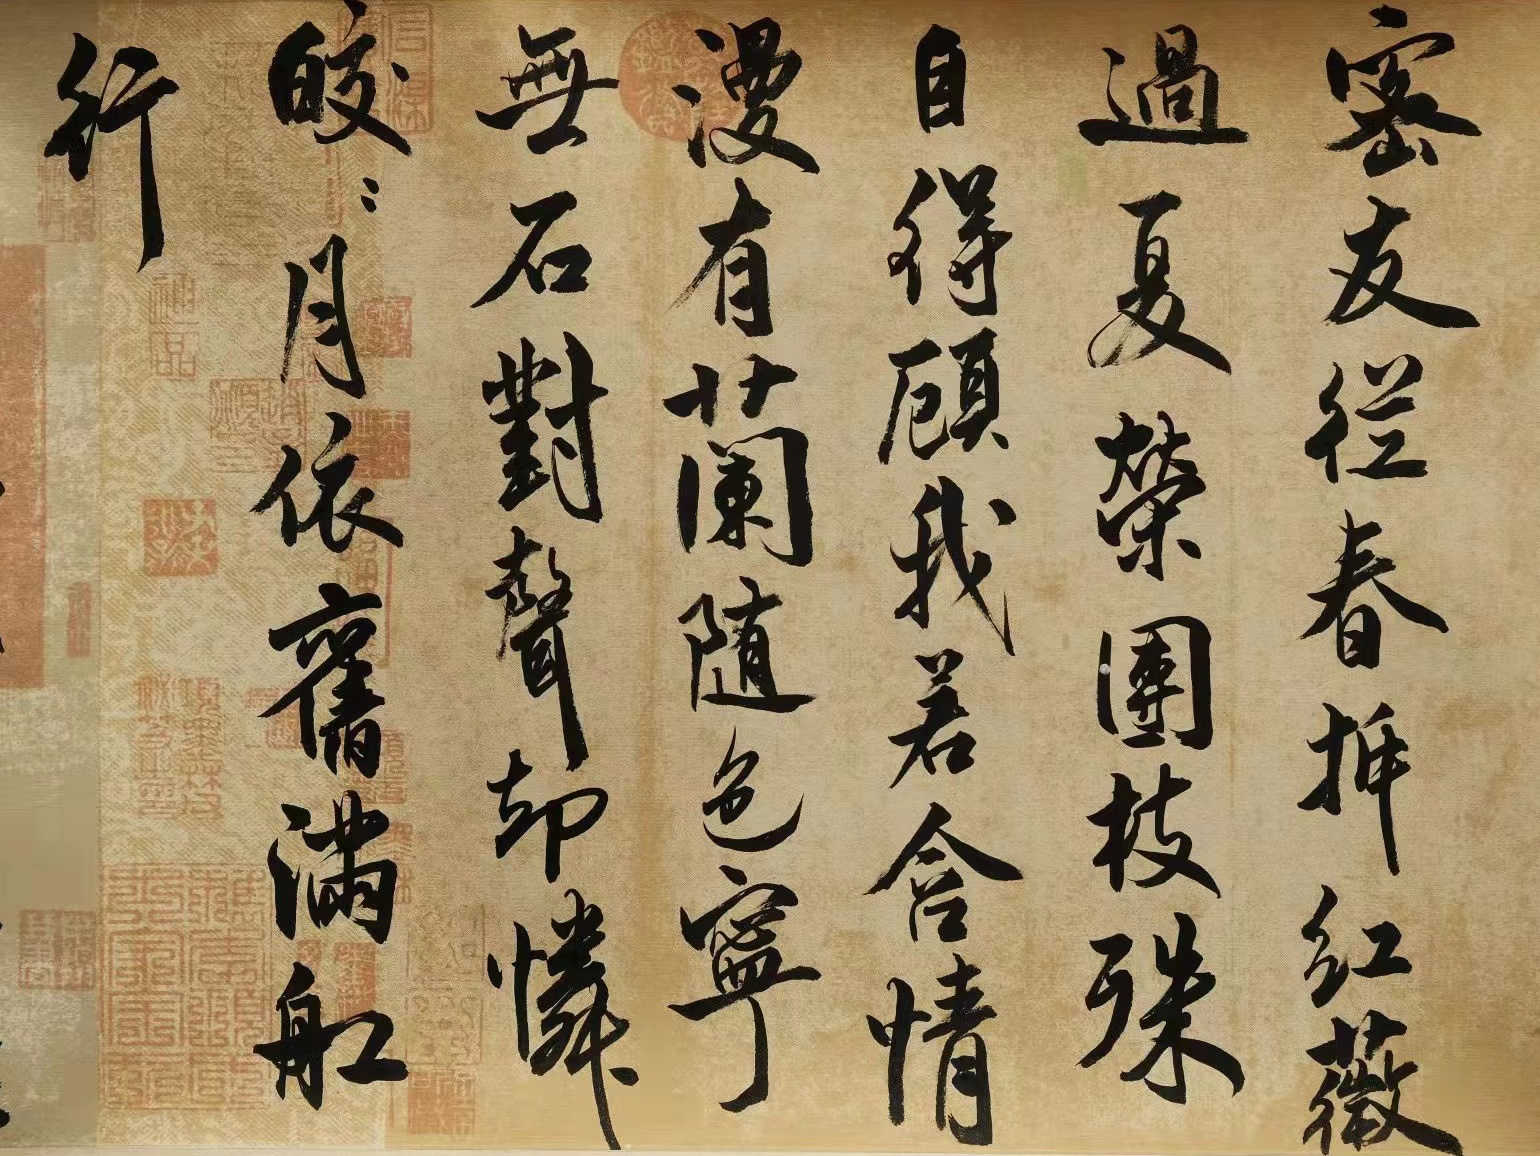 密友從春拆紅薇
過夏榮團枝殊
自得顧我若含情
漫有蘭随色寧
無石對聲却憐
皎〻月依舊滿舡
行